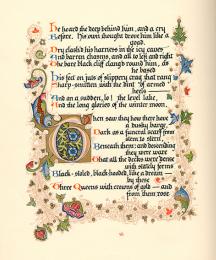 He heard the deep behind him, and a cry
Before. His own thought drove him like a
goad.
Dry clash'd his harness in the icy caves
And barren chasms, and all to left and right
The bare black cliff clang'd round him, as
he based
His feet on juts of slippery crag that rang
Sharp-smitten with the dint of armed
heels—
And on a sudden, lo! the level lake,
And the long glories of the winter moon.
Then saw they how there hove
a dusky barge,
Dark as a funeral scarf from
stem to stern,
Beneath them; and descending
they were ware
That all the decks were dense
with stately forms
Black-stoled, black-hooded, like a dream—
by these
Three Queens with crowns of gold—and
from them rose